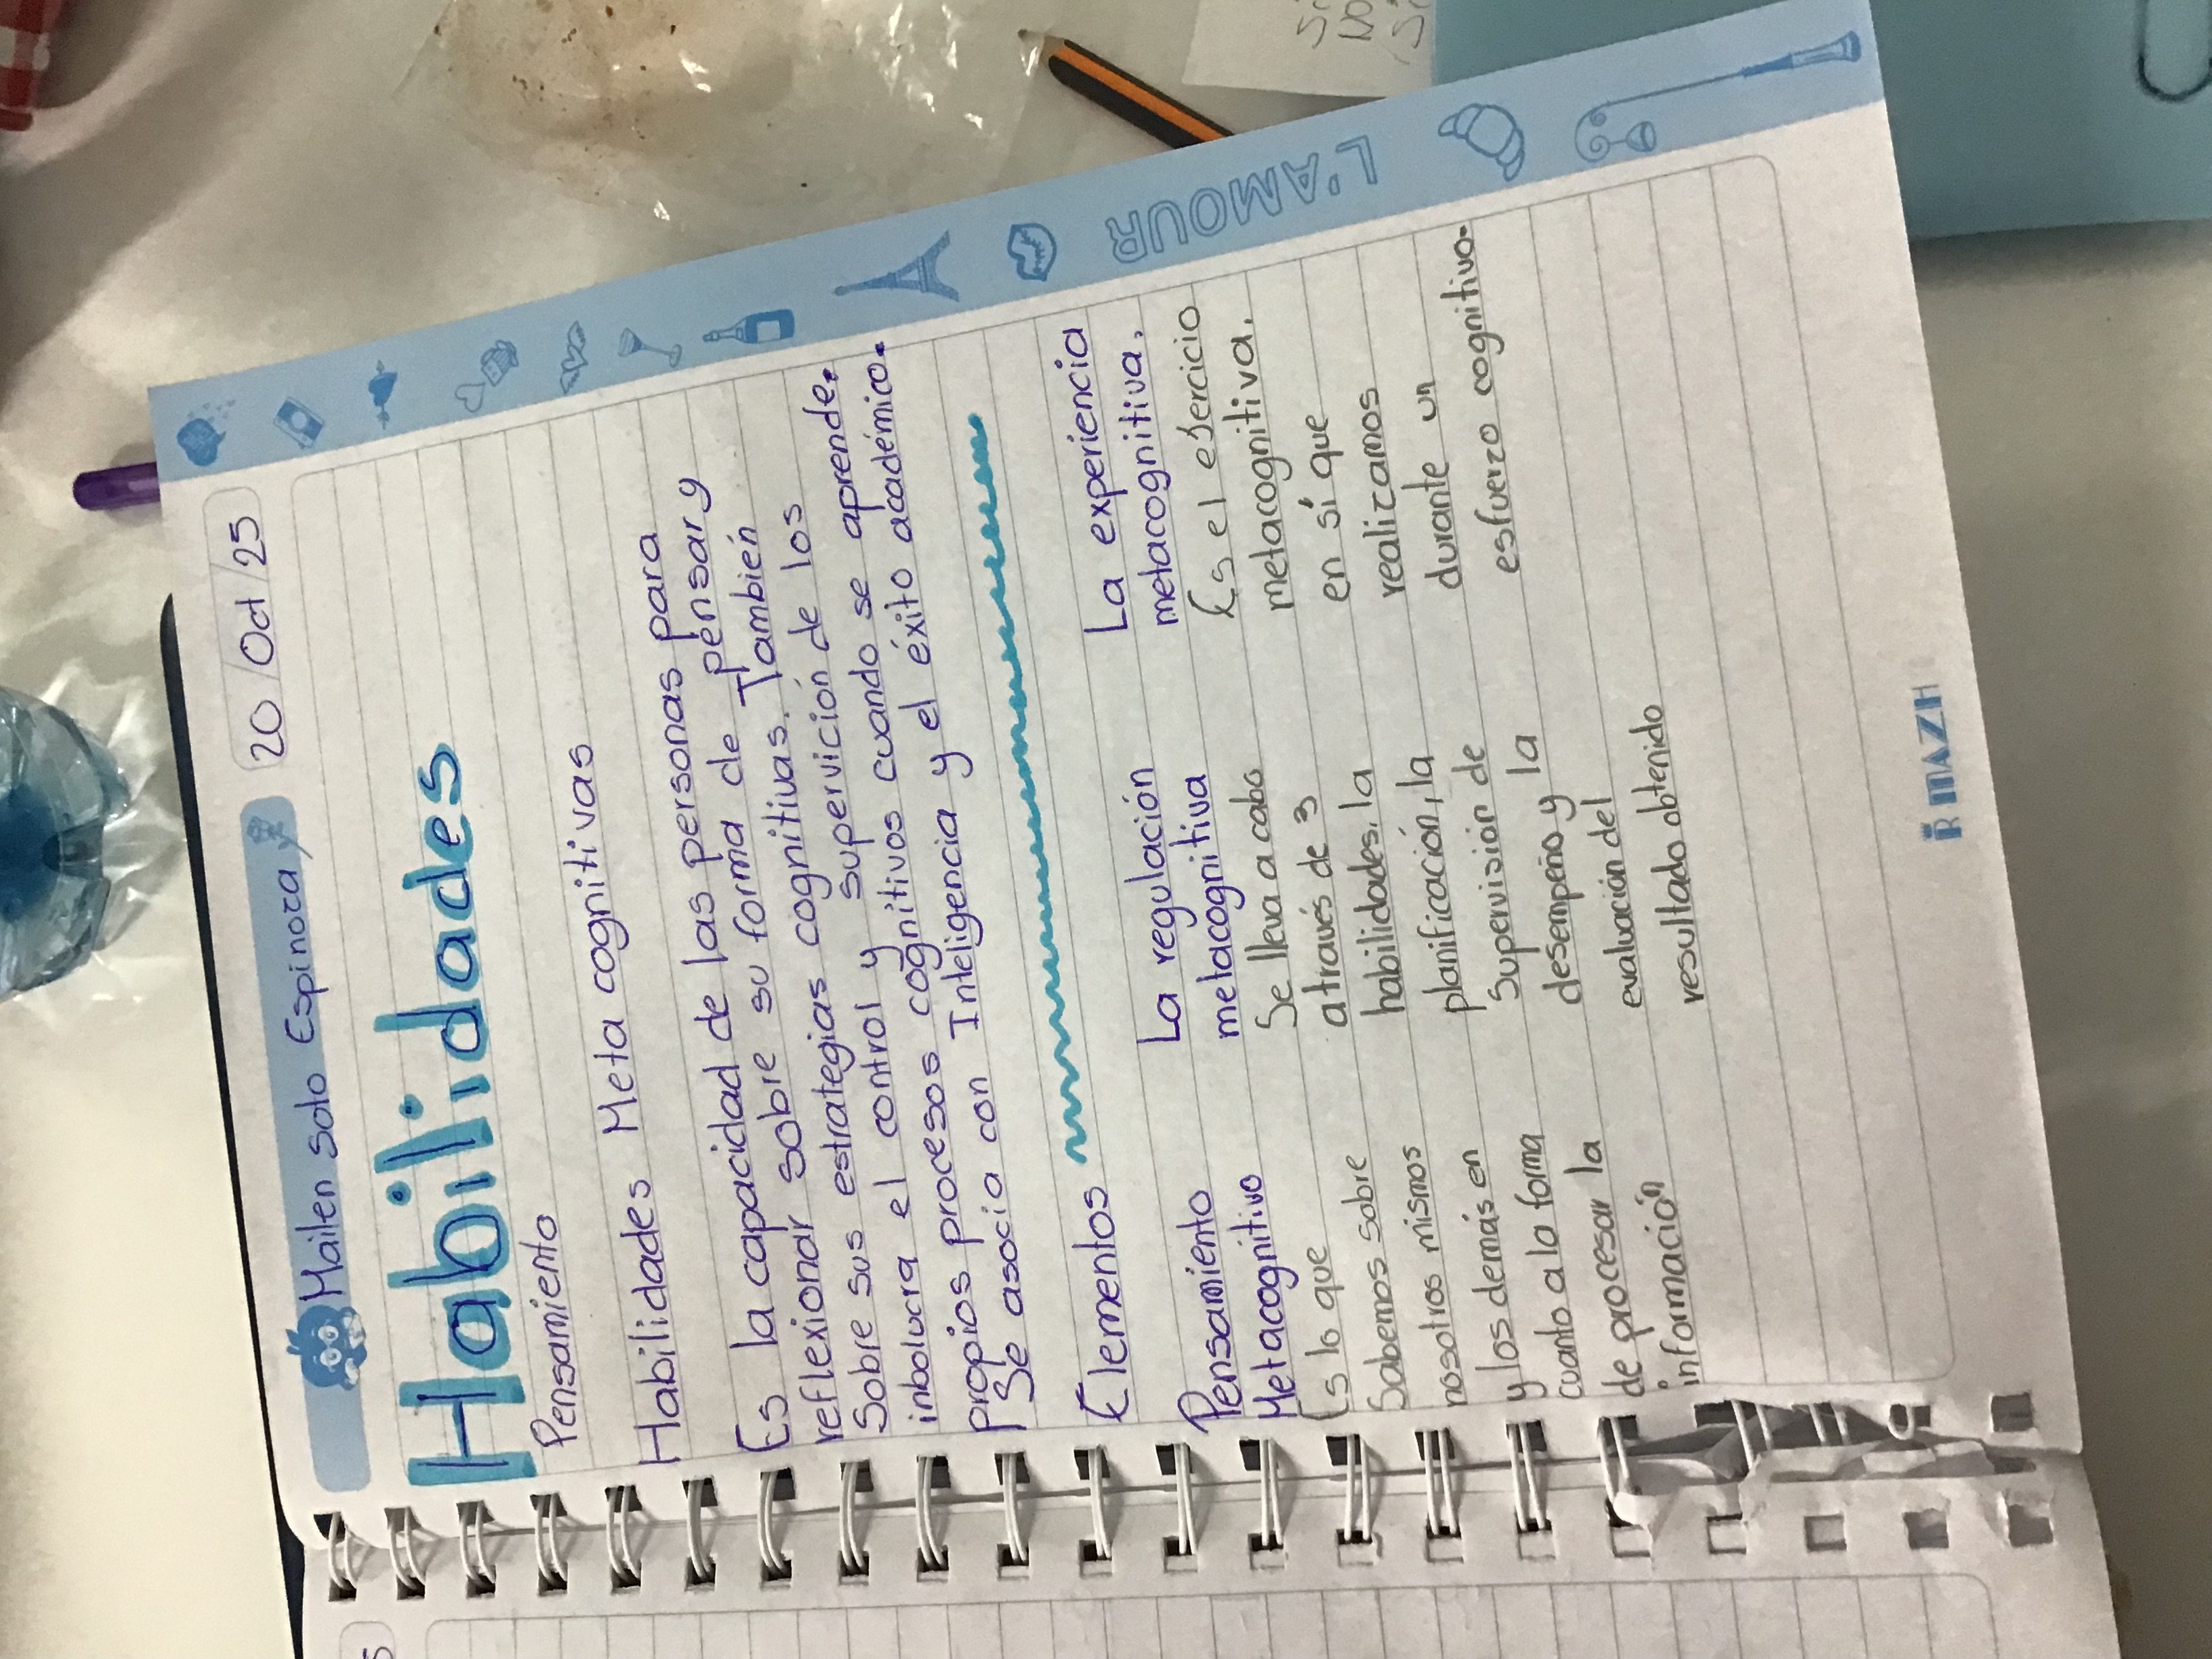 Mailen Soto Espinoza
20/Oct/25
Habilidades
Pensamiento
Habilidades Meta cognitivas
Es la capacidad de las personas para
reflexionar sobre su forma de pensar y
Sobre sus estrategias cognitivas. También
inbolucra el control y supervición de los
propios procesos cognitivos cuando se aprende.
Se asocia con Inteligencia y el éxito académico.
Elementos
Pensamiento
Metacognitivo
Es lo que
Sabemos sobre
nosotros mismos
y los demás en
cuanto a lo forma
de procesar la
información
La regulación
metacognitiva
Se lleva a cabo
através de 3
habilidades, la
planificación, la
Supervisión de
desempeño y la
evaluación del
resultado obtenido
La experiencia
metacognitiva.
Es el ejercicio
metacognitiva.
en sí que
realizamos
durante un
esfuerzo cognitivo.
L'AMOUR